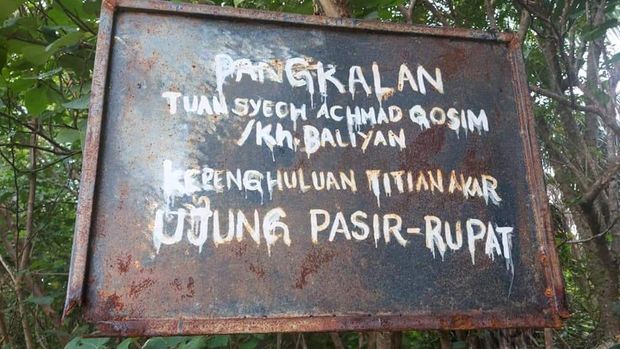 PANGKALAN
TUAN SYEOH ACHMAD QOSIM
/Kh. BALIYAN
KEPENGHULUAN TITIAN AKAR
UJUNG PASIR-RUPAT